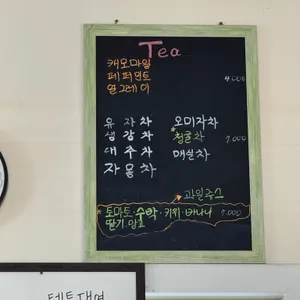 Tea
캐모마일
페퍼민트 4,000
얼그레이
유자차 오미자차
생강차 *청귤차 7,000
대추차 매실차
자몽차
과일쥬스
*토마토·수박·키위·바나나 7,000
딸기·망고
텐트대여